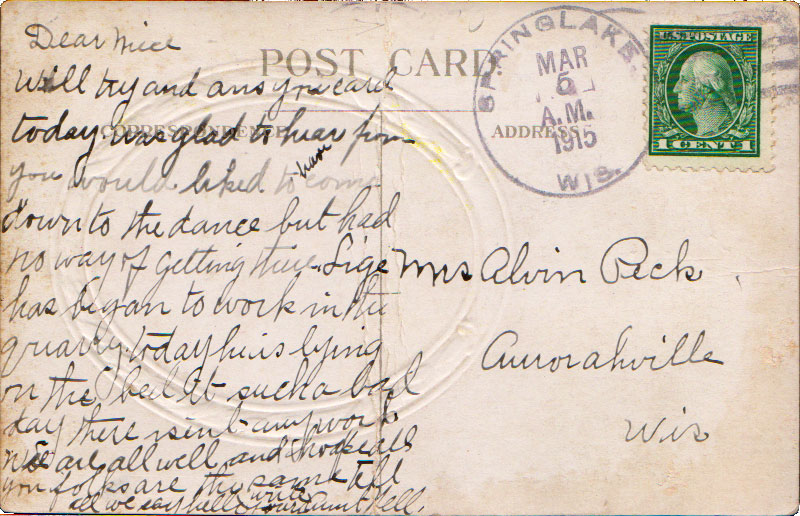 POST CARD.
CORRESPONDENCE
ADDRESS
SPRINGLAKE
MAR
5
A.M.
1915
WIS.
U.S. POSTAGE
1 CENT 1
Dear
Will try and ans your card
today was glad to hear from
you would liked to have come
down to the dance but had
no way of getting there. Lige
has began to work in the
quarry today he is lying
on the bed It such a bad
day there isent any work
we are all well and hope all
you folks are the same tell
all we say hello write your Aunt Nell.
Mrs Alvin Peck
Aurorahville
Wis